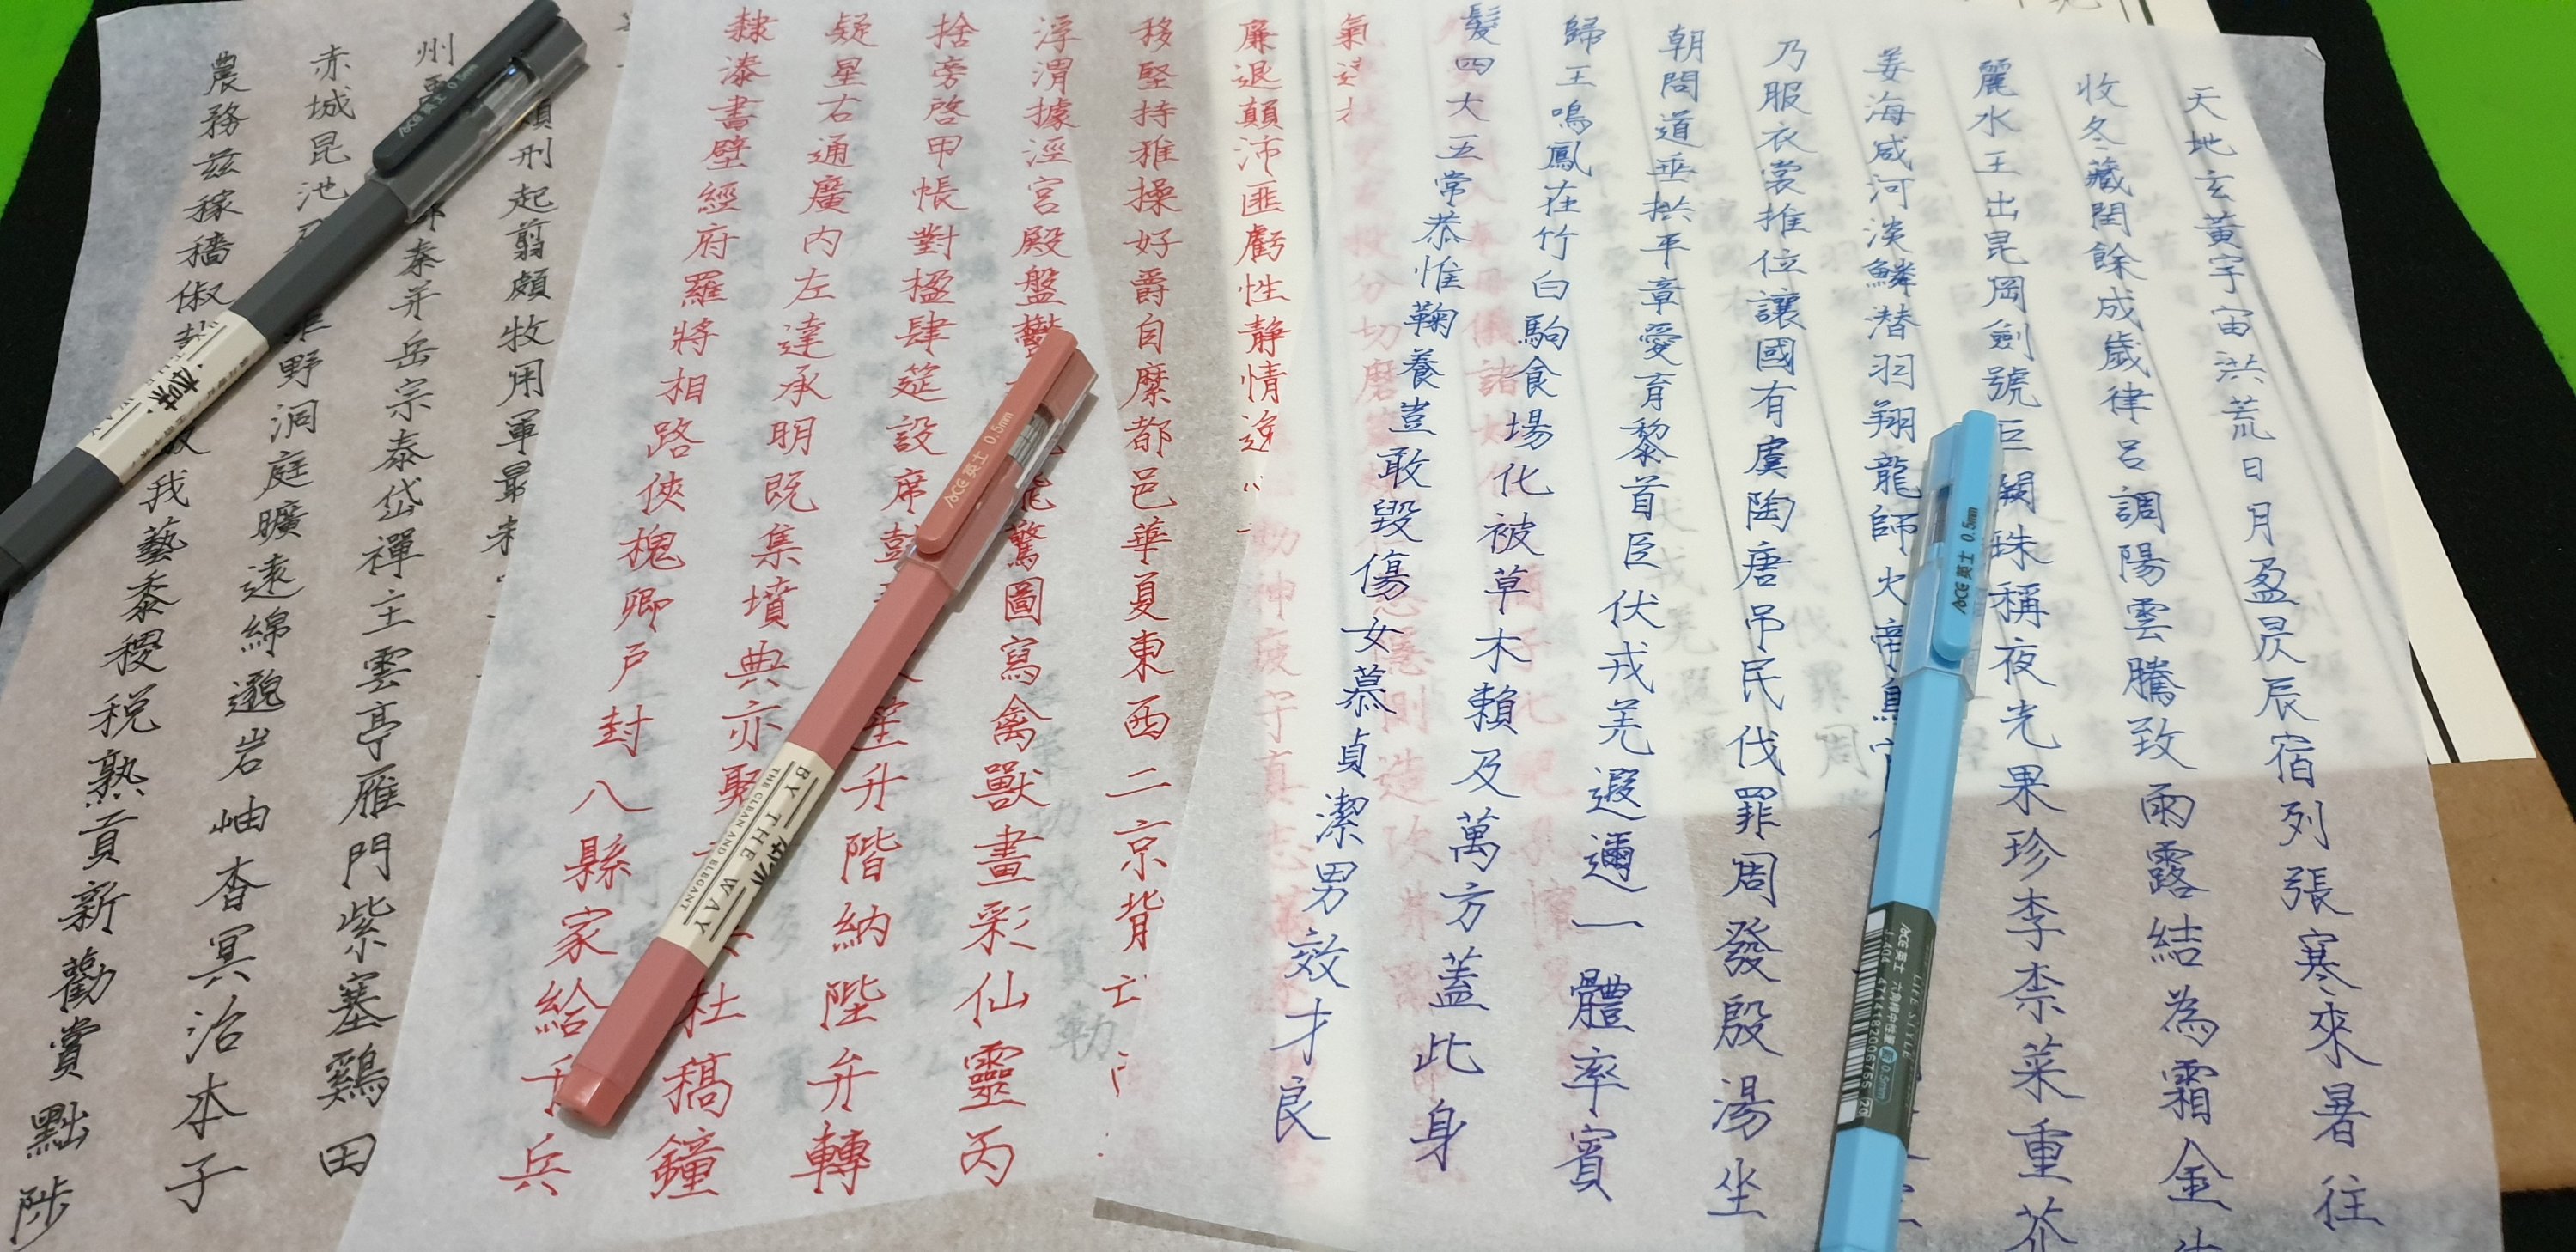 天地玄黃宇宙洪荒日月盈昃辰宿列張寒來暑往
收冬藏閏餘成歲律呂調陽雲騰致雨露結為霜金
麗水玉出昆岡劍號巨闕珠稱夜光果珍李柰菜重芥
姜海咸河淡鱗潛羽翔龍師火帝鳥
乃服衣裳推位讓國有虞陶唐吊民伐罪周發殷湯坐
朝問道垂拱平章愛育黎首臣伏戎羌遐邇一體率賓
歸王鳴鳳在竹白駒食場化被草木賴及萬方蓋此身
髮四大五常恭惟鞠養豈敢毀傷女慕貞潔男效才良
氣
廉退顛沛匪虧性靜情逸
移堅持雅操好爵自縻都邑華夏東西二京背
浮渭據涇宮殿盤鬱驚圖寫禽獸畫彩仙靈丙
捨旁啓甲帳對楹肆筵設席鼓升階納陛弁轉
疑星右通廣內左達承明既集墳典亦聚杜稿鐘
隸漆書壁經府羅將相路俠槐卿戶封八縣家給千兵
刑起翦頗牧用軍最
州秦并岳宗泰岱禪主雲亭雁門紫塞鷄田
赤城昆池野洞庭曠遠綿邈岩岫杳冥治本子
農務茲稼穡俶我藝黍稷稅熟貢新勸賞黜陟
ACE 英士 0.5mm
ACE 英士 0.5mm
BY THE WAY
THE CLEAN AND ELEGANT
ACE 英士 0.5mm
LIFE STYLE
ACE 英士